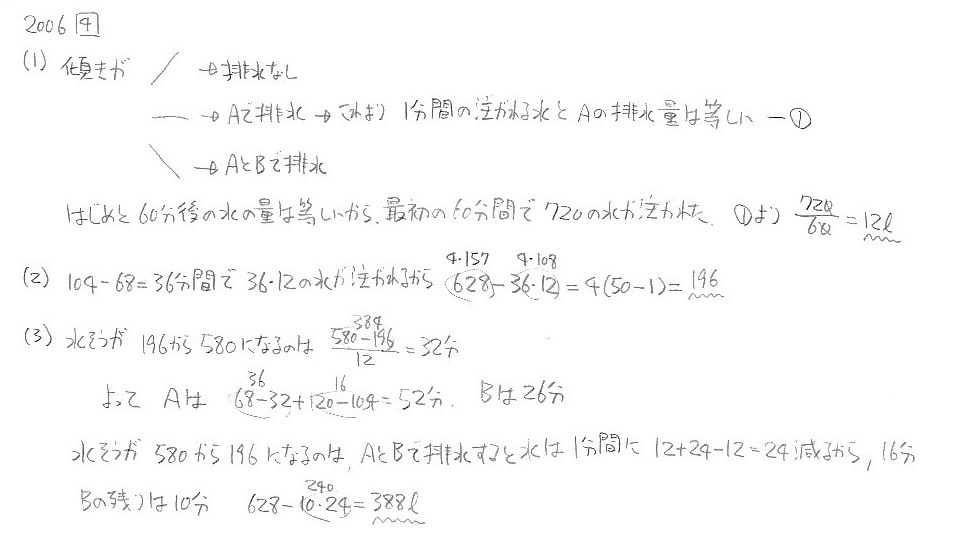 2006 4
(1) 傾きが / → 排水なし
— → Aで排水 → これより 1分間の注がれる水とAの排水量は等しい —①
\ → AとBで排水
はじめと60分後の水の量は等しいから、最初の60分間で720の水が注がれた. ①より 720/60 = 12ℓ
(2) 104-68=36分間で 36·12の水が注がれるから 628-36·12 = 4(50-1) = 196
4·157 4·108
(3) 水そうが 196から580になるのは 580-196/12 = 32分
384
よって Aは 68-32+120-104=52分. Bは26分
36 16
水そうが 580から196になるのは, AとBで排水すると水は1分間に 12+24-12=24減るから, 16分
Bの残りは10分 628-10·24=388ℓ
240